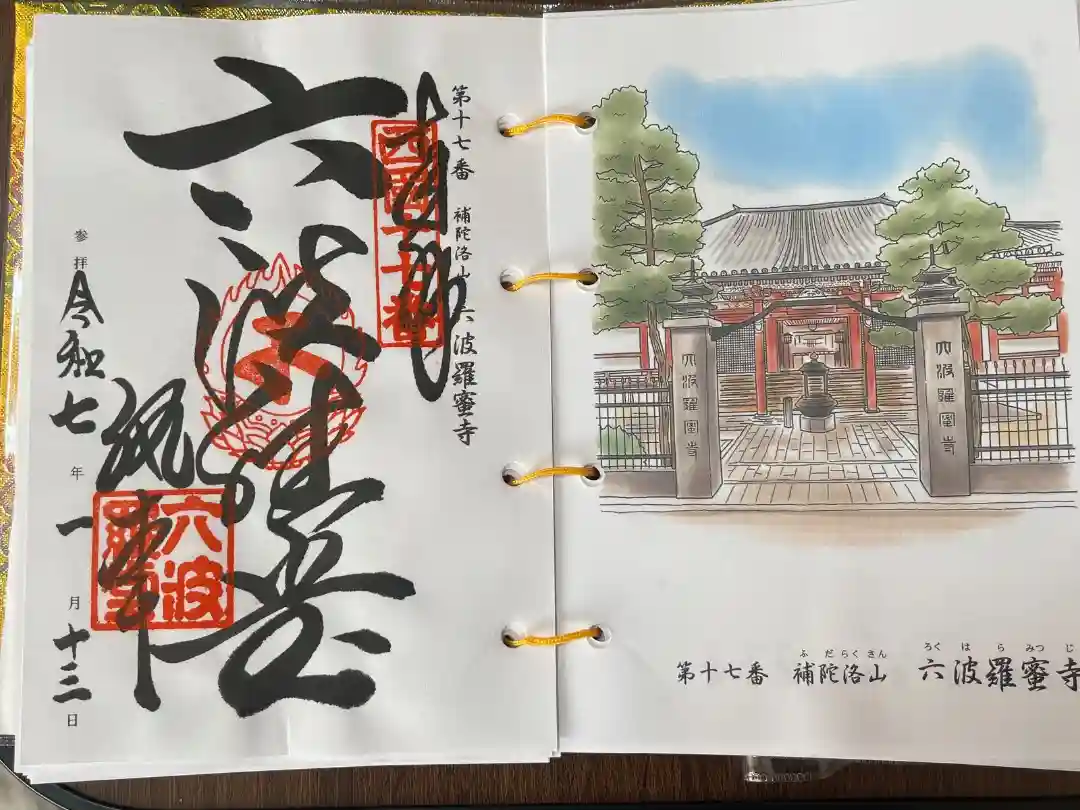 第十七番　補陀洛山　六波羅蜜寺
西国十七番
六波羅堂
参拝 令和七年一月十三日
六波羅蜜寺
六波羅蜜寺
ふだらくさん ろくはらみつじ
第十七番　補陀洛山　六波羅蜜寺